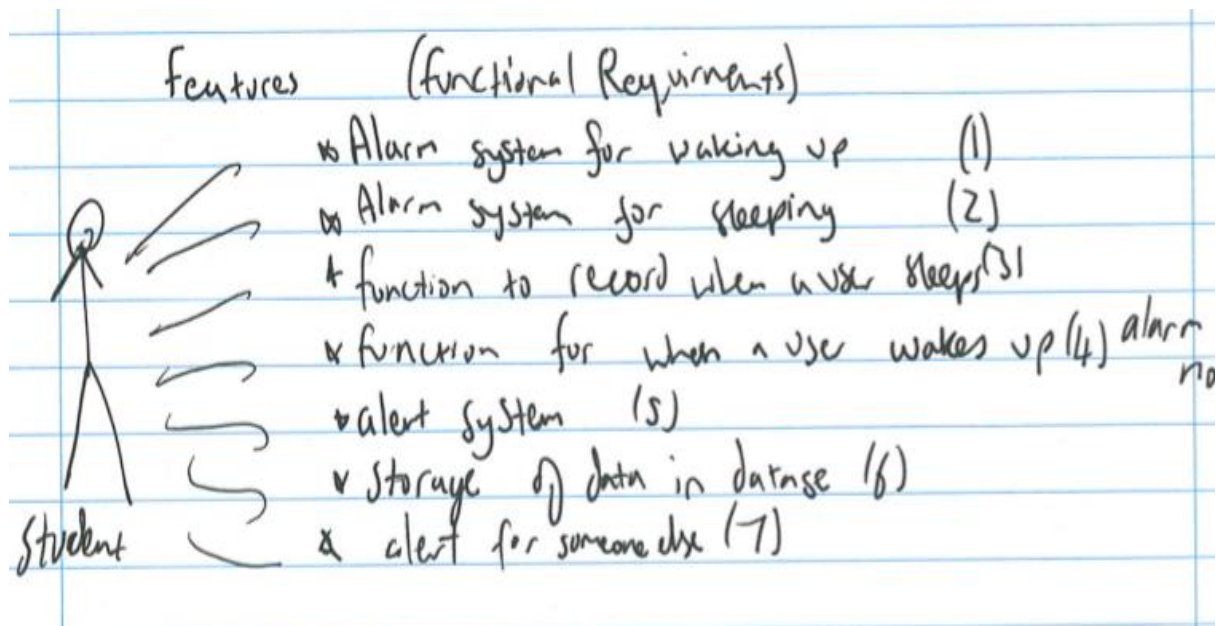 features (functional Requirments)
Alarm system for waking up (1)
Alarm system for sleeping (2)
function to record when a user sleeps (3)
function for when a user wakes up (4) alarm
alert system (5)
storage of data in datase (6)
alert for someone else (7)
Student